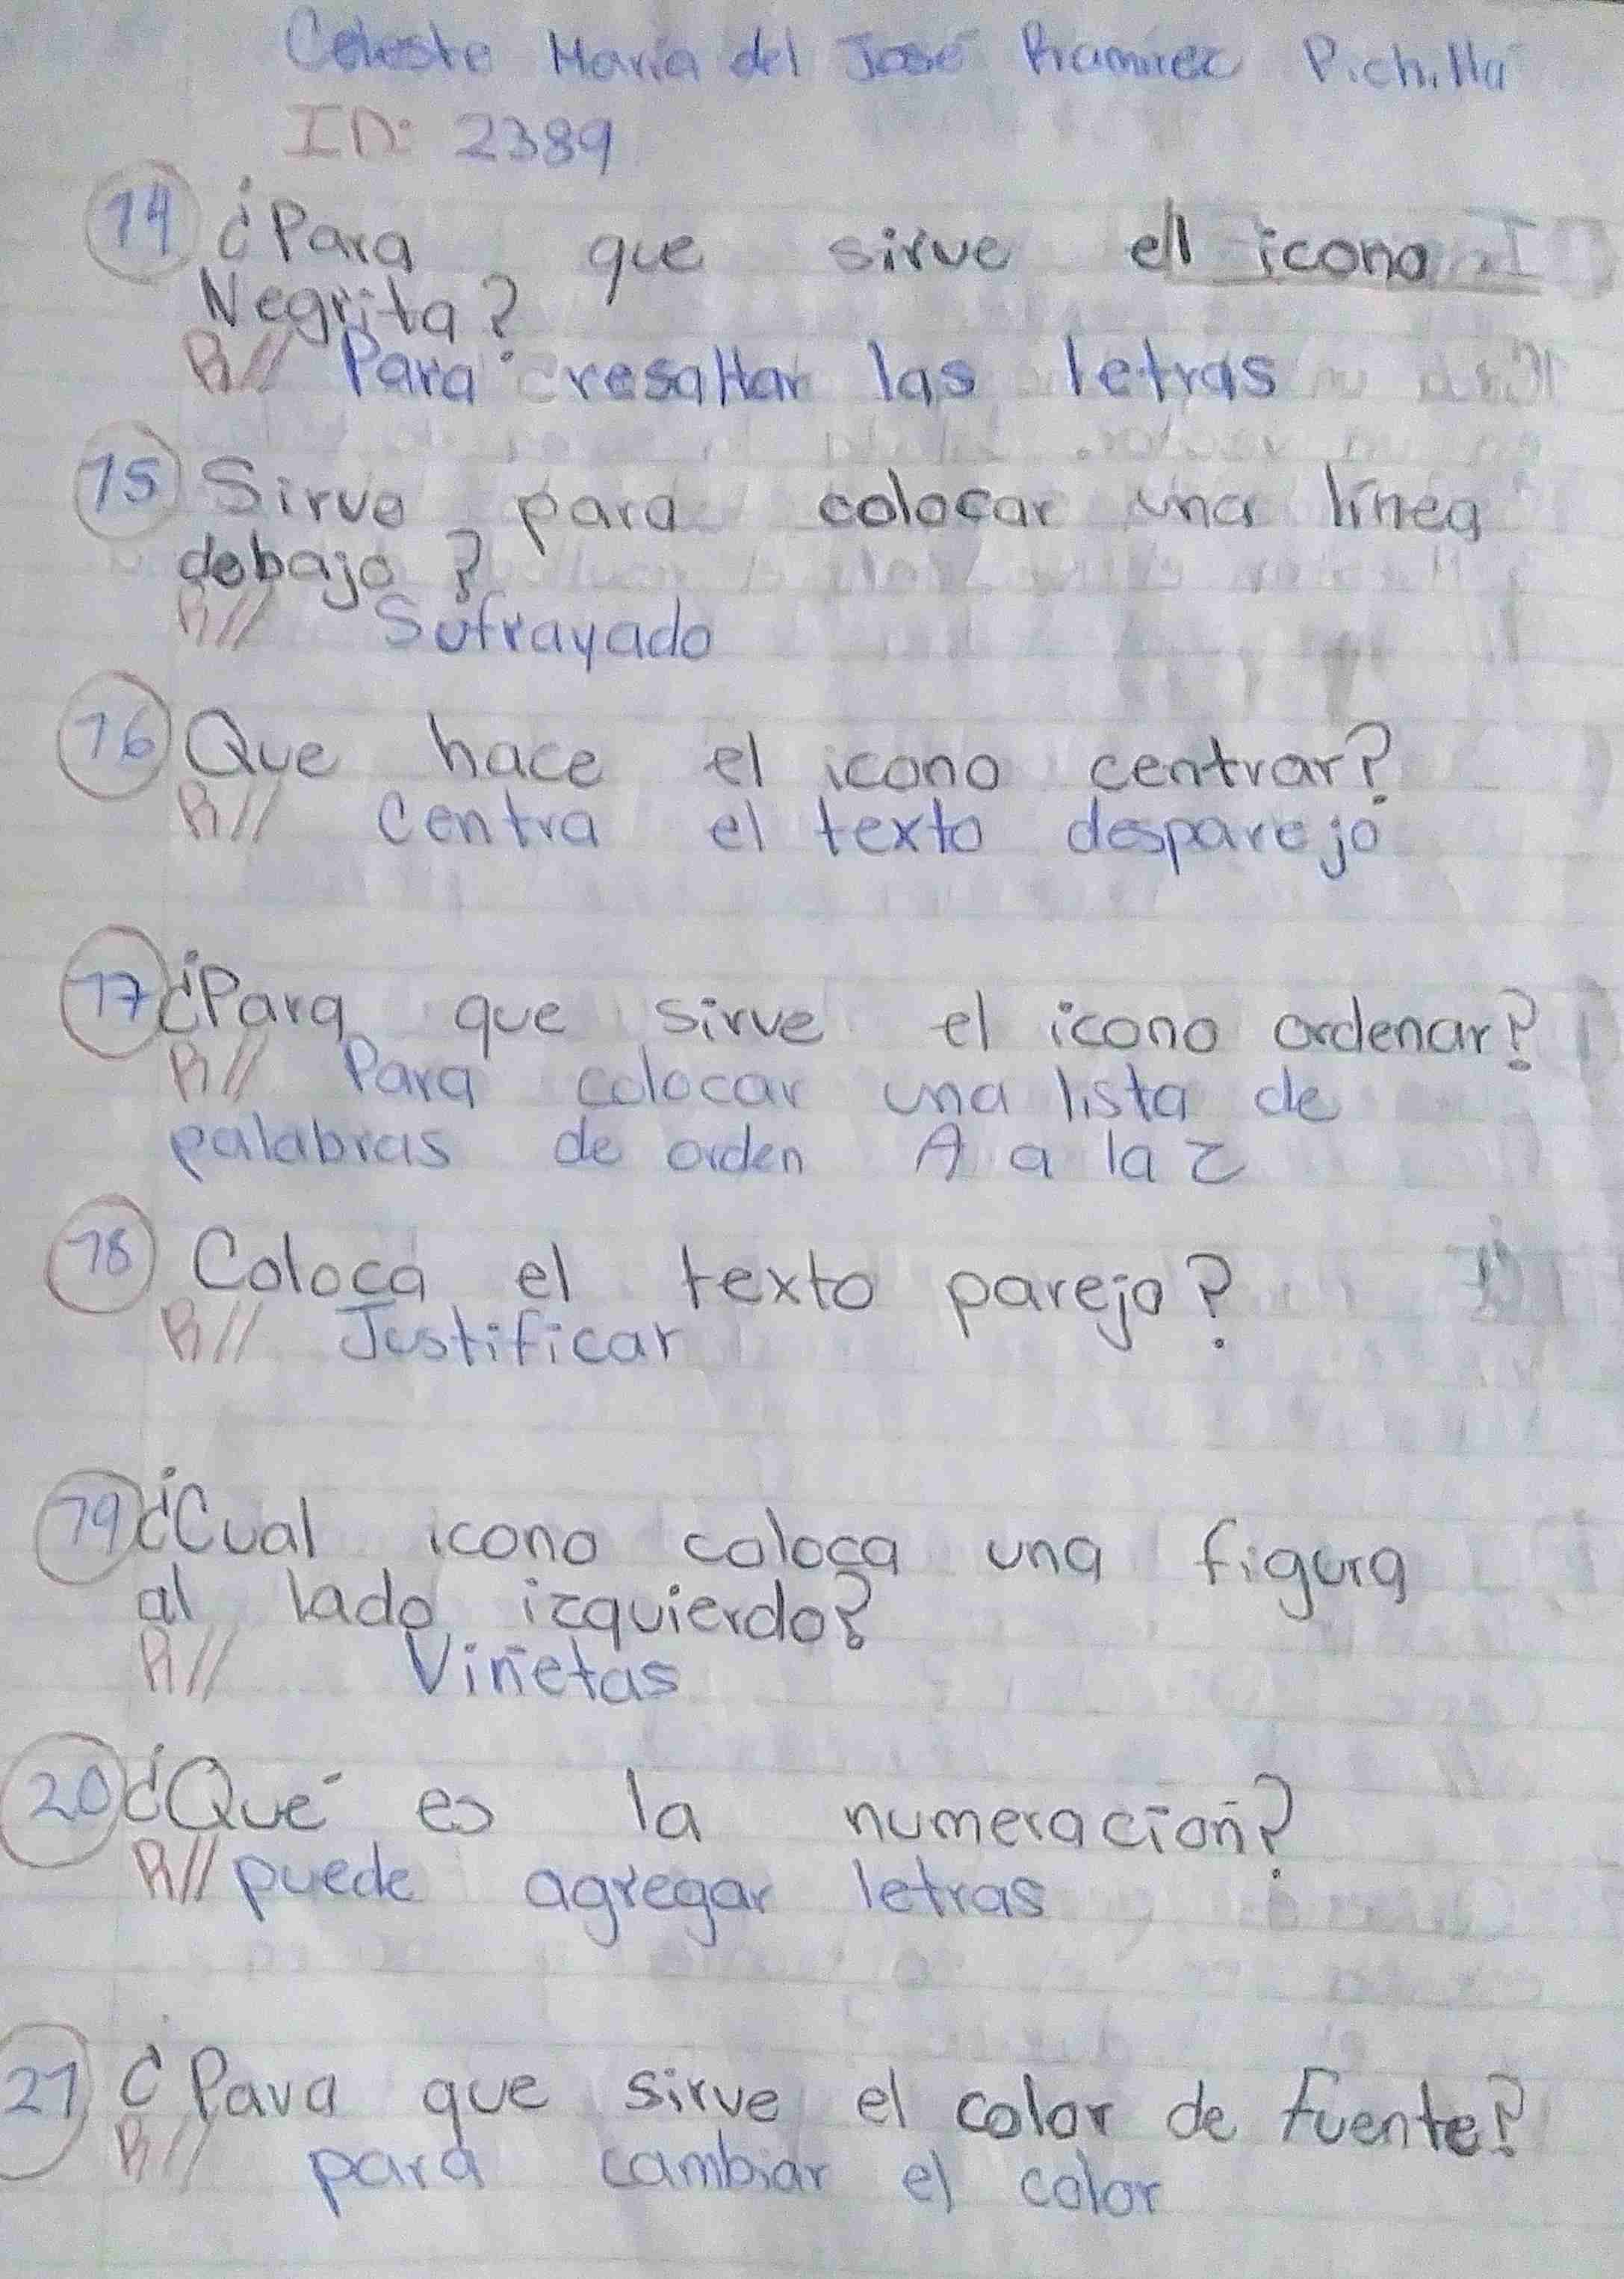 Celeste María del José Ramírez Pichillá
ID: 2389
14 ¿Para que sirve el icono
Negrita?
R// Para resaltar las letras
15 Sirve para colocar una línea
debajo?
R// Sufrayado
16 Que hace el icono centrar?
R// Centra el texto desparejo
17 ¿Para que sirve el icono ordenar?
R// Para colocar una lista de
palabras de orden A a la Z
18 Coloca el texto parejo?
R// Justificar
19 ¿Cual icono coloca una figura
al lado izquierdo?
R// Viñetas
20 ¿Qué es la numeración?
R// puede agregar letras
21 ¿Para que sirve el color de Fuente?
R// para cambiar el color